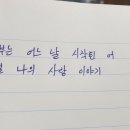 부는 어느 날 시작된 어
널 나의 사랑 이야기